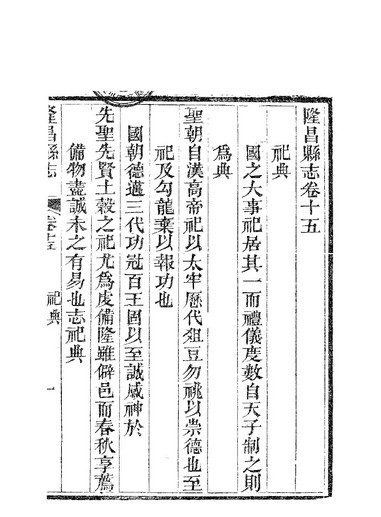 隆昌縣志卷十五
祀典
國之大事祀居其一而禮儀度數自天子制之則
爲典
聖朝自漢高帝祀以太牢歷代俎豆勿祧以崇德也至
祀及勾龍棄以報功也
國朝德邁三代功冠百王固以至誠感神於
先聖先賢土穀之祀尤爲虔備隆雖僻邑而春秋享薦
備物盡誠未之有易也志祀典
隆昌縣志
卷十五
祀典
一